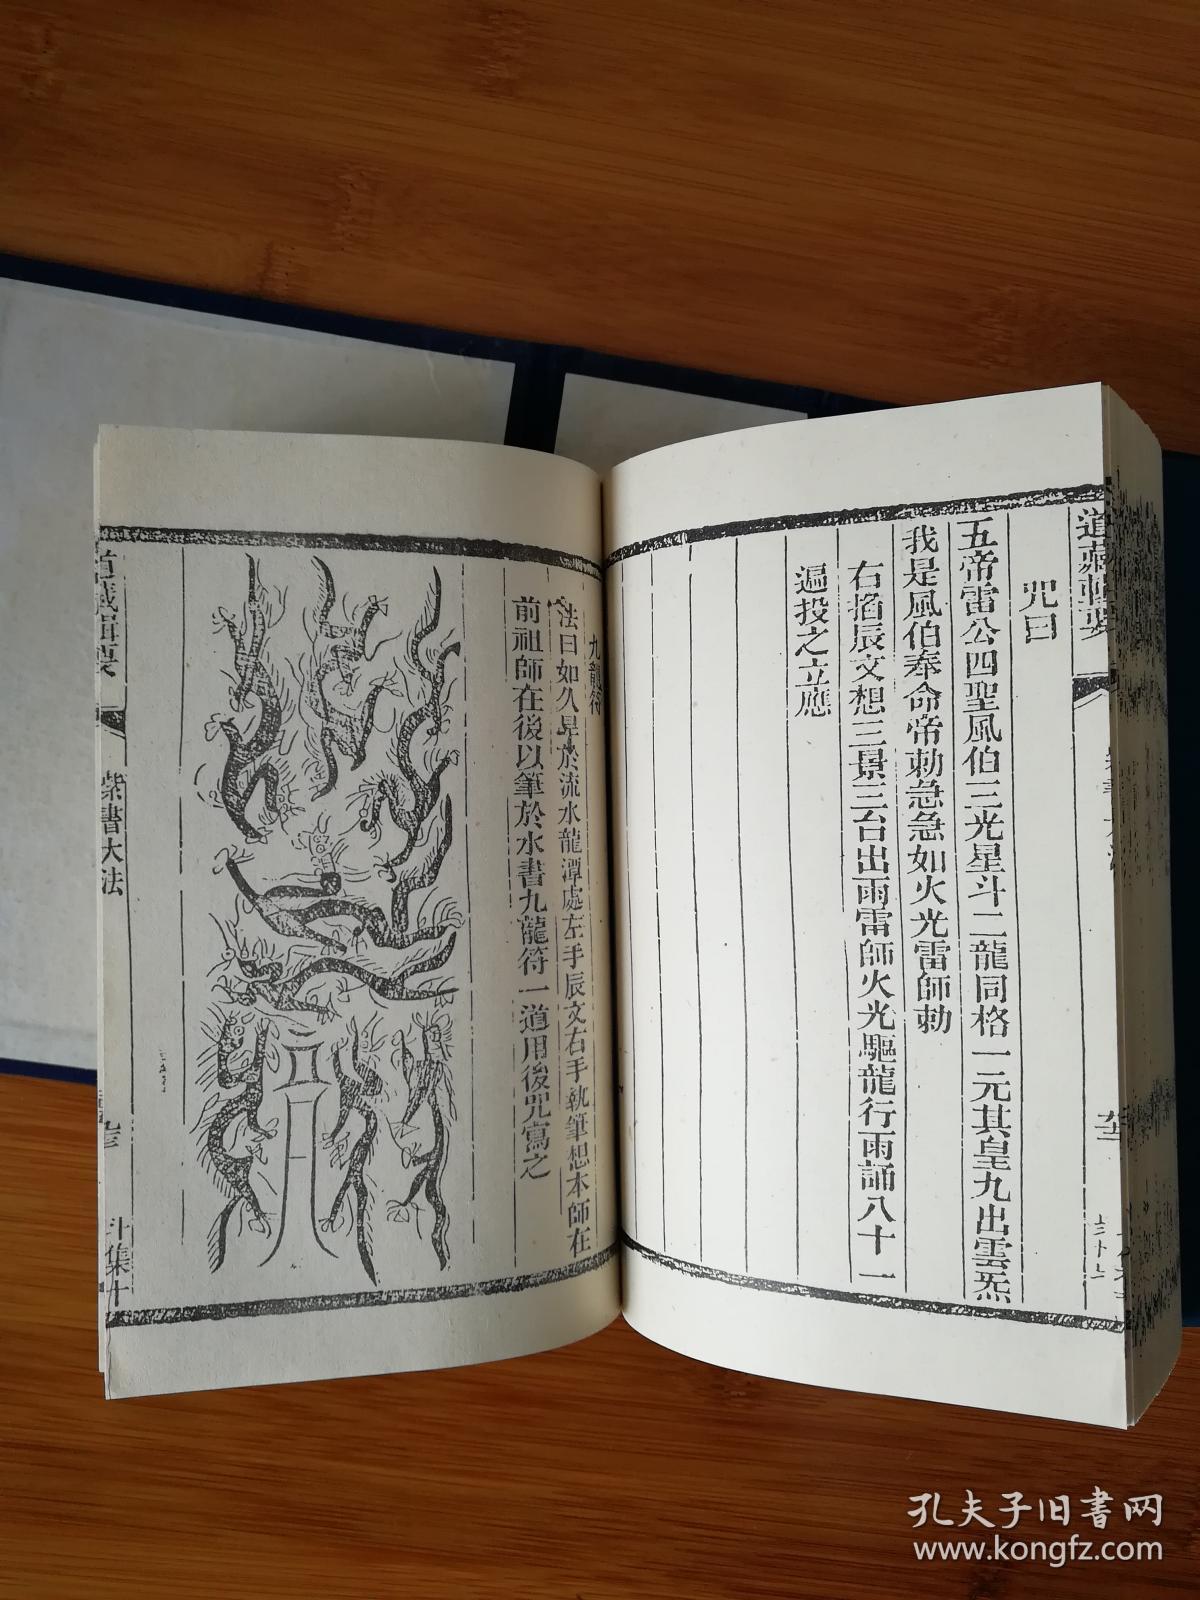 道藏輯要
咒曰
五帝雷公四聖風伯三光星斗二龍同格一元其皇九出雲炁
我是風伯奉命帝勅急急如火光雷師勅
右掐辰文想三景三台出雨雷師火光驅龍行雨誦八十一
遍投之立應
九龍符
法曰如久旱於流水龍潭處左手辰文右手執筆想本師在
前祖師在後以筆於水書九龍符一道用後咒寫之
道藏輯要
紫書大法
九十三
斗集十
孔夫子旧书网
www.kongfz.com